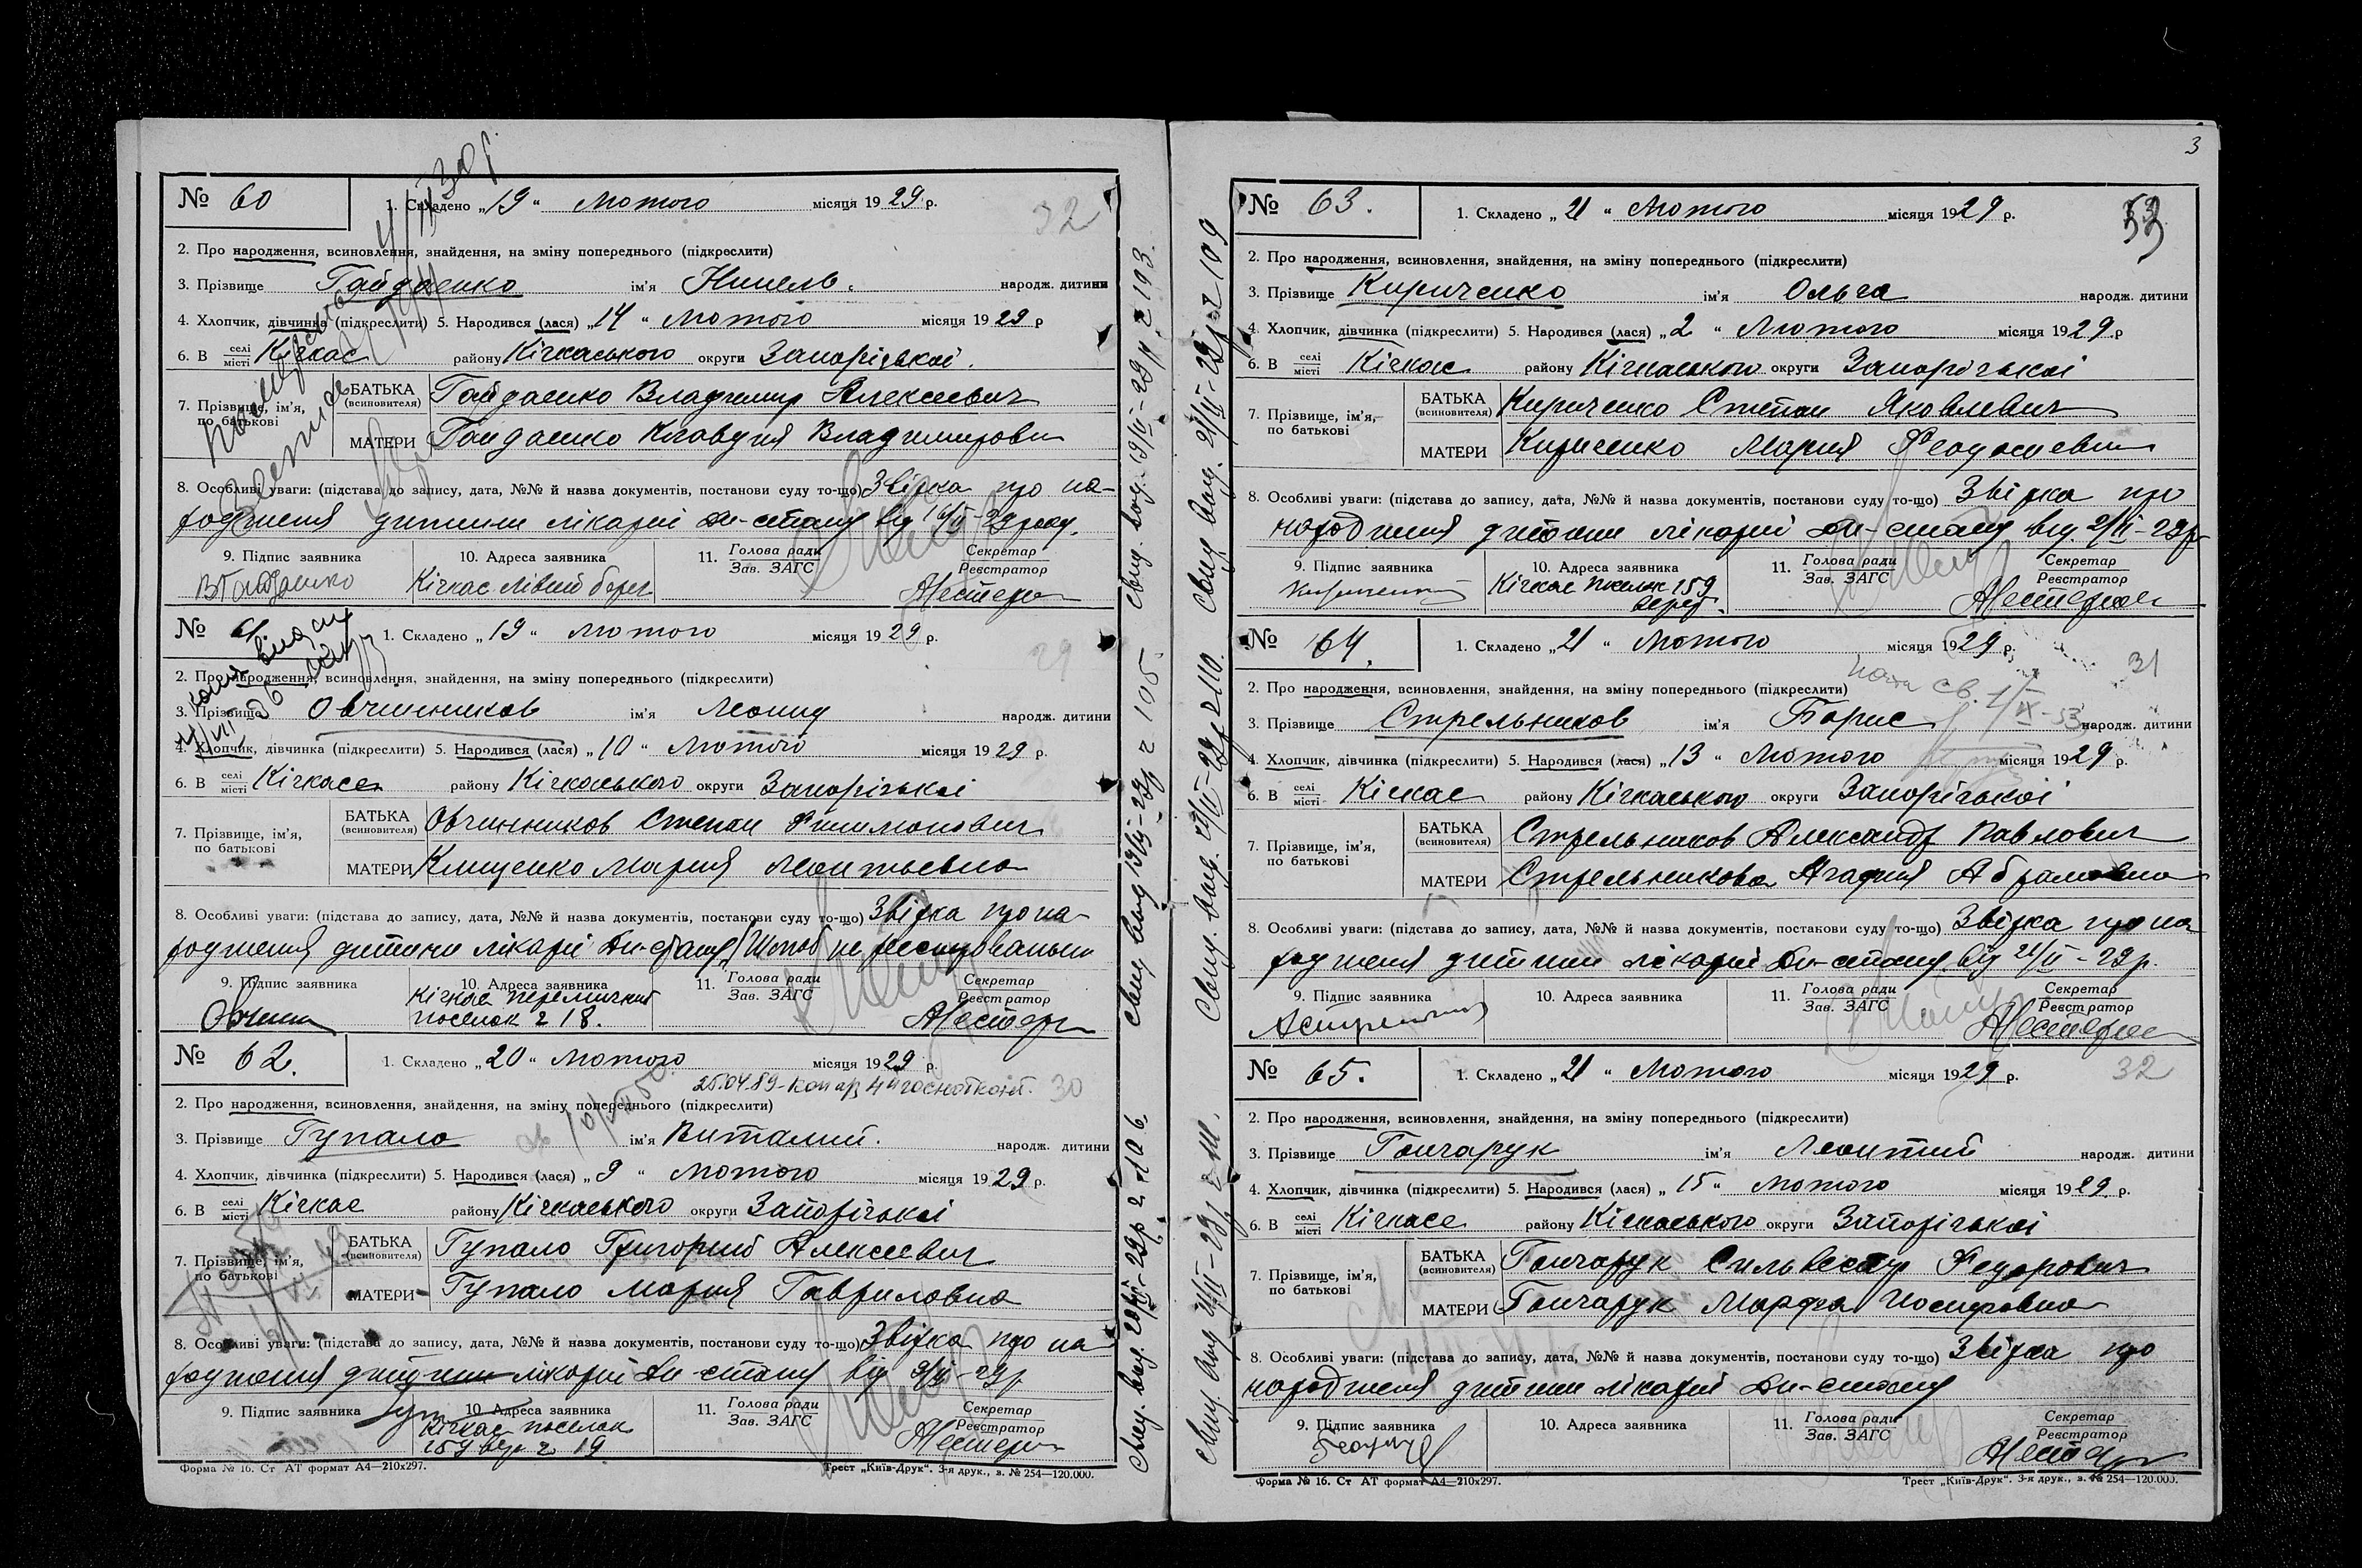 № 60
1. Складено „19“ Лютого місяця 1929 р.
32
2. Про народження, всиновлення, знайдення, на зміну попереднього (підкреслити)
3. Прізвище Гайдаенко ім'я Нинель. народж. дитини
4. Хлопчик, дівчинка (підкреслити) 5. Народився (лася) „14“ Лютого місяця 1929 р
6. В селі місті Кічкас району Кічкаського округи Запорізької.
7. Прізвище, ім'я, по батькові
БАТЬКА (всиновителя) Гайдаенко Владимир Алексеевич
МАТЕРИ Гайдаенко Клавдия Владимировн
8. Особливі уваги: (підстава до запису, дата, №№ й назва документів, постанови суду то-що) Звірка про на-
родження дитини лікарні Дн-стану від 16/II-29 року.
9. Підпис заявника 10. Адреса заявника 11. Голова ради Зав. ЗАГС Секретар Реєстратор
ВГайдаенко Кічкас лівий берег
№ 61.
1. Складено „19“ лютого місяця 1929 р.
29
2. Про народження, всиновлення, знайдення, на зміну попереднього (підкреслити)
3. Прізвище Овчинников ім'я Леонид народж. дитини
4. Хлопчик, дівчинка (підкреслити) 5. Народився (лася) „10“ Лютого місяця 1929 р.
6. В селі місті Кічкасе району Кічкаського округи Запорізькоі
7. Прізвище, ім'я, по батькові
БАТЬКА (всиновителя) Овчинников Степан Филимонович
МАТЕРИ Клищенко Мария Леонтьевна
8. Особливі уваги: (підстава до запису, дата, №№ й назва документів, постанови суду то-що) Звірка про на-
родження дитини лікарні Дн-стану
9. Підпис заявника 10. Адреса заявника 11. Голова ради Зав. ЗАГС Секретар Реєстратор
Кічкас
поселок 2 18.
№ 62.
1. Складено „20“ Лютого місяця 1929 р.
25.04.89-
30
2. Про народження, всиновлення, знайдення, на зміну попереднього (підкреслити)
3. Прізвище Гупало ім'я Виталий. народж. дитини
4. Хлопчик, дівчинка (підкреслити) 5. Народився (лася) „9“ Лютого місяця 1929 р.
6. В селі місті Кічкас району Кічкаського округи Запорізькоі
7. Прізвище, ім'я, по батькові
БАТЬКА (всиновителя) Гупало Григорий Алексеевич
МАТЕРИ Гупало Мария Гавриловна
8. Особливі уваги: (підстава до запису, дата, №№ й назва документів, постанови суду то-що) Звірка про на
родження дитини лікарні Дн-стану від 9/II-29 р
9. Підпис заявника 10. Адреса заявника 11. Голова ради Зав. ЗАГС Секретар Реєстратор
Кічкас поселок
159 вер 2 19.
Форма № 16. Ст АТ формат А4—210х297. Трест „Київ-Друк“. 3-я друк., з. № 254—120.000.
3
№ 63.
1. Складено „21“ Лютого місяця 1929 р.
2. Про народження, всиновлення, знайдення, на зміну попереднього (підкреслити)
3. Прізвище Кириченко ім'я Ольга народж. дитини
4. Хлопчик, дівчинка (підкреслити) 5. Народився (лася) „2“ Лютого місяця 1929 р
6. В селі місті Кічкас району Кічкаського округи Запорізькоі
7. Прізвище, ім'я, по батькові
БАТЬКА (всиновителя) Кириченко Степан Яковлевич
МАТЕРИ Кириченко Мария Феодосиевн
8. Особливі уваги: (підстава до запису, дата, №№ й назва документів, постанови суду то-що) Звірка про
народження дитини лікарні Дн-стану від 2/II-29р
9. Підпис заявника 10. Адреса заявника 11. Голова ради Зав. ЗАГС Секретар Реєстратор
Кічкас поселок 159
верст.
№ 64.
1. Складено „21“ Лютого місяця 1929 р.
31
2. Про народження, всиновлення, знайдення, на зміну попереднього (підкреслити)
3. Прізвище Стрельников ім'я Борис народж. дитини
4. Хлопчик, дівчинка (підкреслити) 5. Народився (лася) „13“ Лютого місяця 1929 р.
6. В селі місті Кічкас району Кічкаського округи Запорізькоі
7. Прізвище, ім'я, по батькові
БАТЬКА (всиновителя) Стрельников Александр Павлович
МАТЕРИ Стрельникова Агафия Абрамовна
8. Особливі уваги: (підстава до запису, дата, №№ й назва документів, постанови суду то-що) Звірка про на
родження дитини лікарні Дн-стану від 21/II-29р.
9. Підпис заявника 10. Адреса заявника 11. Голова ради Зав. ЗАГС Секретар Реєстратор
№ 65.
1. Складено „21“ Лютого місяця 1929 р.
32
2. Про народження, всиновлення, знайдення, на зміну попереднього (підкреслити)
3. Прізвище Гончарук ім'я Леонтий народж. дитини
4. Хлопчик, дівчинка (підкреслити) 5. Народився (лася) „15“ Лютого місяця 1929 р.
6. В селі місті Кічкасе району Кічкаського округи Запорізькоі
7. Прізвище, ім'я, по батькові
БАТЬКА (всиновителя) Гончарук Сильвестр Федорович
МАТЕРИ Гончарук Марфа Иосиповна
8. Особливі уваги: (підстава до запису, дата, №№ й назва документів, постанови суду то-що) Звірка про
народження дитини лікарні Дн-стану
9. Підпис заявника 10. Адреса заявника 11. Голова ради Зав. ЗАГС Секретар Реєстратор
Форма № 16. Ст АТ формат А4—210х297. Трест „Київ-Друк“. 3-я друк., з. № 254—120.000.